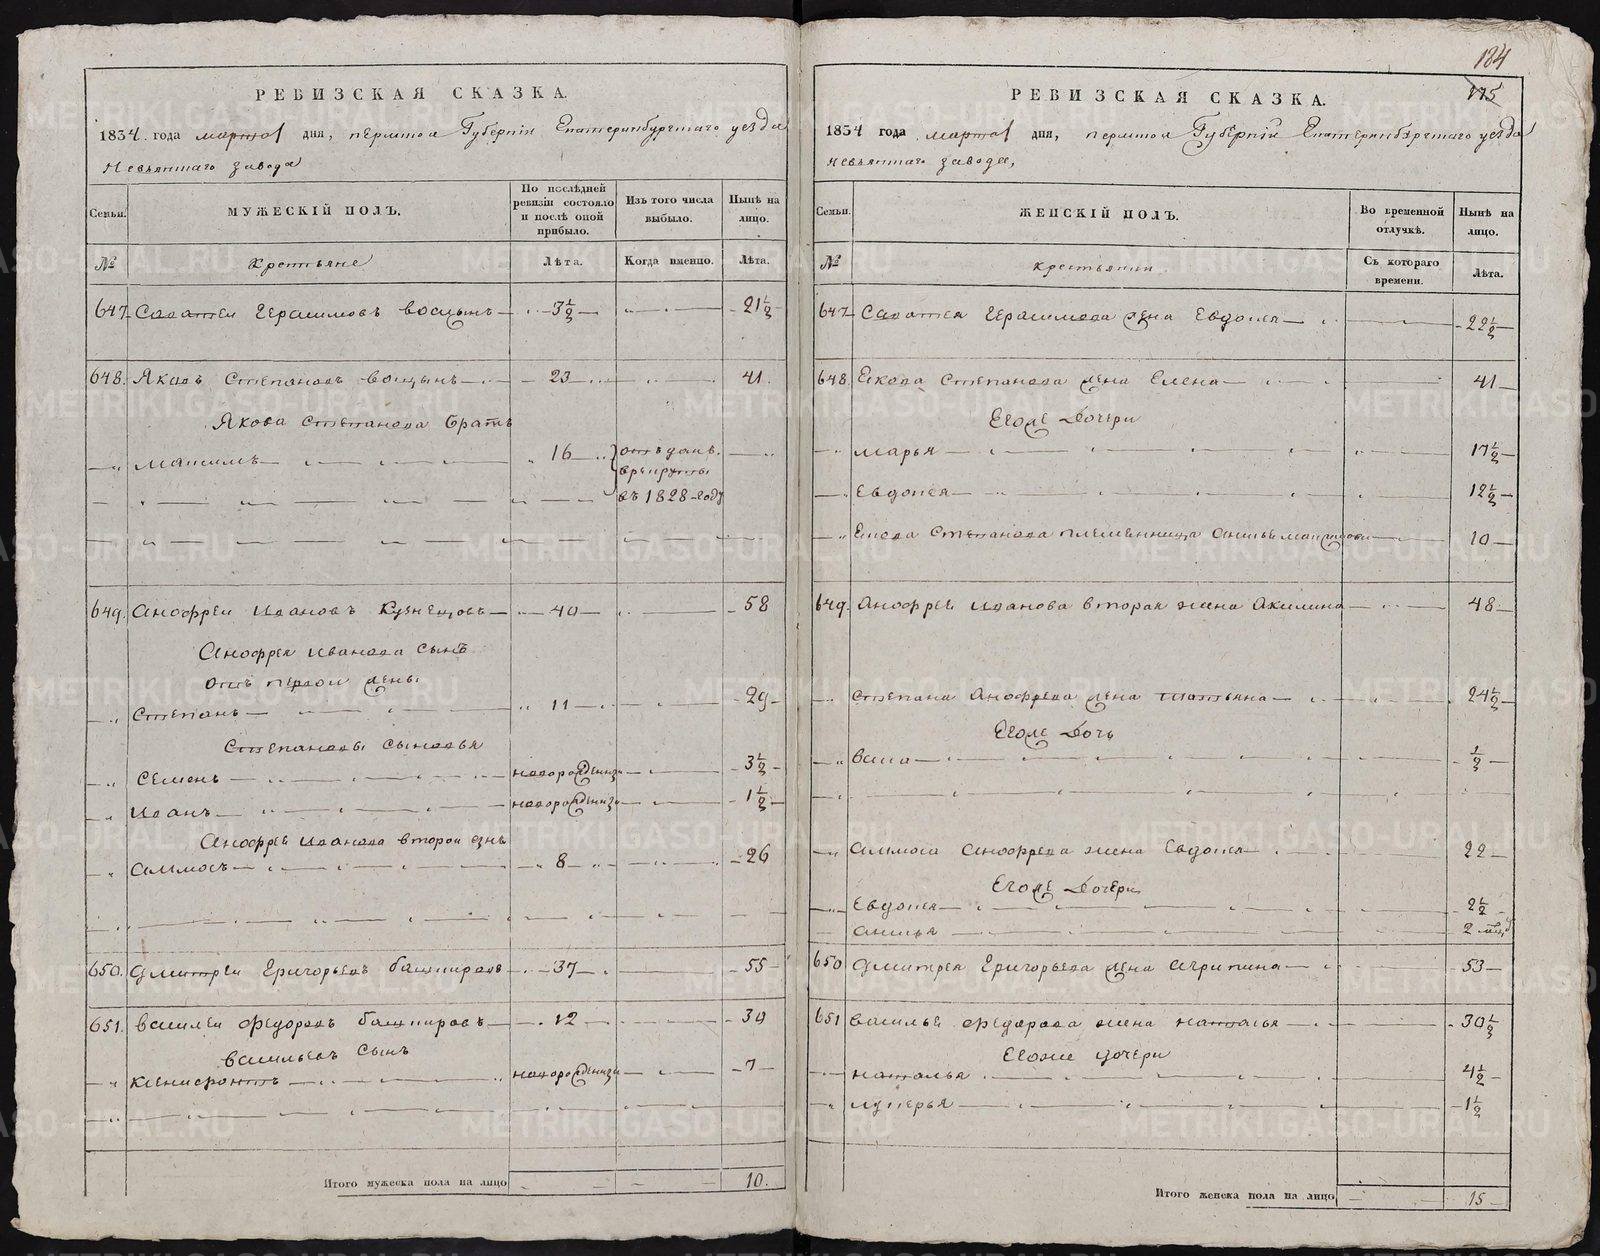 184
175
РЕВИЗСКАЯ СКАЗКА.
1834 года марта 1 дня, пермской Губернии Екатеринбургскаго уезда
Невьянскаго завода
Семьи.
МУЖЕСКІЙ ПОЛЪ.
По послѣдней ревизіи состояло и послѣ оной прибыло.
Изъ того числа выбыло.
Нынѣ на лицо.
№
Крестьяне
Лѣта.
Когда именно.
Лѣта.
647 Саватеи Герасимовъ 3½ 21½
648. Яковъ Степановъ 23 41.
Якова Степанова братъ
Максимъ 16 отъданъ.
врекруты
въ 1828 году
649. Анофреи Ивановъ Кузнецовъ 40 58
Анофрея Иванова сынъ
отъ первои жены
Степанъ 11 29
Степановы сыновья
Семенъ новорожденны 3½
Иванъ новорожденны 1½
Анофрея Иванова второи сынъ
Аммосъ 8 26
650. Дмитреи Григорьевъ башкировъ 37 55
651. Василеи Федоровъ башкировъ 12 30
Васильевъ сынъ
Ксенофонтъ новорожденны 7
Итого мужеска пола на лицо 10.
РЕВИЗСКАЯ СКАЗКА.
1834 года марта 1 дня, пермской Губернии Екатеринбургскаго уезда
Невьянскаго завода,
Семьи.
ЖЕНСКІЙ ПОЛЪ.
Во временной отлучкѣ.
Нынѣ на лицо.
№
крестьянки
Съ котораго времени.
Лѣта.
647 Саватея Герасимова жена Евдокея 22½
648. Якова Степанова жена Елена 41
Егоже Дочери
Марья 17½
Евдокея 12½
Якова Степанова племянница 10
649. Анофрея Иванова вторая жена Акилина 48
Степана Анофреева жена татьяна 24½
Егоже Дочь
½
Аммоса Анофреева жена Евдокея 22
Егоже Дочери
Евдокея 2½
Анисья 2 мец
650 Дмитрея Григорьева жена Агрипина 53
651 Василья Федорова жена Наталья 30½
Егоже дочери
Наталья 4½
Лукерья 1½
Итого женска пола на лицо 15